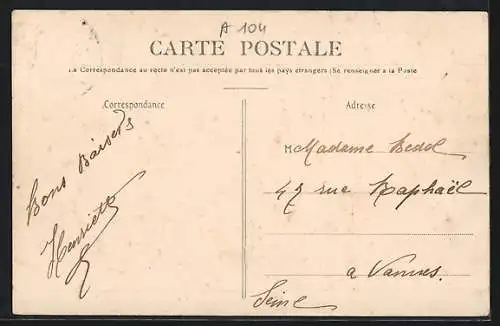 A 104
CARTE POSTALE
La Correspondance au recto n'est pas acceptée par tous les pays étrangers (Se renseigner à la Poste
Correspondance
Bons Baisers
Henriette
Adresse
M Madame Bedel
47 rue Raphaël
a Vanves.
Seine